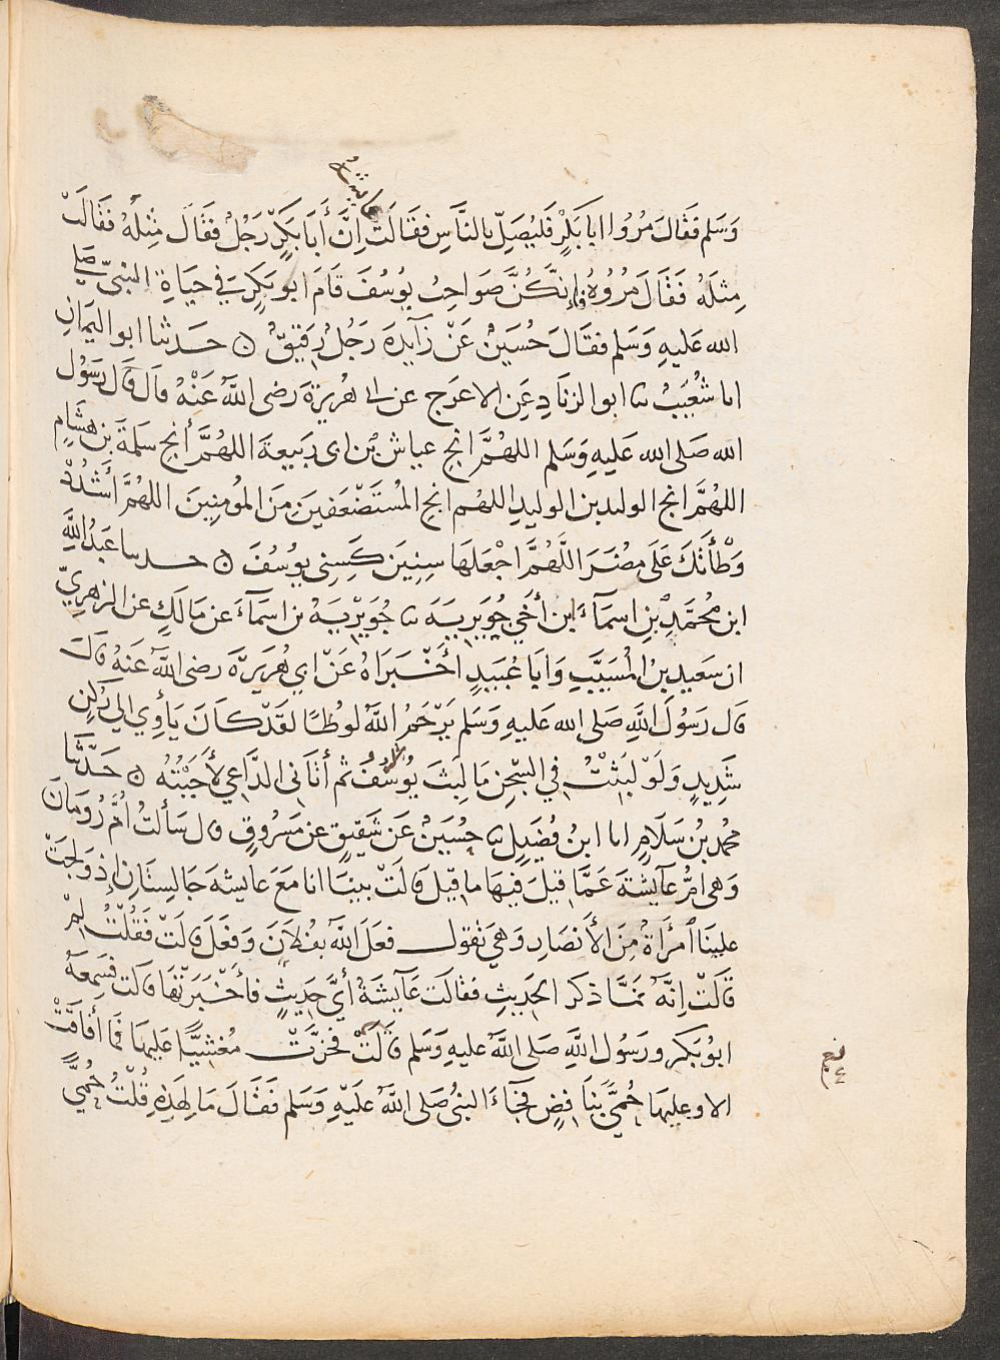 وَسَلم فَقَالَ مُرُوا ابا بَكْرٍ فَليُصَلِّ بالنَّاسِ فقالَتْ اِنَّ أَبَا بَكْرٍ رَجُلٌ فقَالَ مِثلَهُ فَقَالَتْ
مِثلَهُ فَقَالَ مُرُوْهُ فإِنكُنَّ صَواحِبُ يوُسُفَ قَامَ ابو بَكرٍ في حيَاةِ النبىّ صَلى
الله عَليهِ وَسَلم فقَالَ حُسَينٌ عَنْ زَآيدَة رَجُلٌ رَقيقٌ ۞ حَدثنا ابو اليَمَانِ
انا شُعَيبٌ نا ابو الزنَادِ عَنِ الاعرَج عن ابى هُريرَةَ رَضى اللهُ عَنْهُ قال قَال رَسُوْل
الله صَلى الله عَليهِ وَسَلم اللهُمَّ انجِ عياش بْن ابى رَبيعةَ اللهُمَّ أنجِ سَلمَة بن هشَامٍ
اللهُمَّ انجِ الوليد بن الوليدِ اللهُم انجِ المُسْتَضْعَفينَ مِنَ المُومِنِينَ اللهُمَّ أشْدُدْ
وَطْأتَكَ عَلَى مضَرَ اللّهُمَّ اجْعَلهَا سِنِينَ كَسِنِى يوُسُفَ ۞ حدثنا عَبدُ اللَّهِ
ابن مُحمّدِ بْنِ اسمآءَ ابن أخَي جُوَيرِيَةَ نا جُوَيرِيَةُ بن اسمآءَ عن مَالكٍ عن الزهرِيّ
ان سَعيد بْنَ المُسَيَّبِ وَابَا عُبَيدٍ أخْبَرَاهُ عَنْ ابي هُرَيرَةَ رضى اللهُ عَنهُ قَالَ
قَال رَسُولُ اللَّهِ صَلى الله عَليهِ وَسَلم يَرْحَمُ اللَّهُ لوُطًا لقَدْ كانَ يَأوِي الي رُكنٍ
شَدِيدٍ وَلَوْ لبَثتُ في السّجْنِ مَا لبِثَ يوُسُفُ ثم أتَانى الدَّاعي لأجَبْتُهُ ۞ حَدَّثَنا
محُمد بْنُ سَلامٍ انا ابنُ فُضَيلٍ نا حُسَينٌ عَن شَقيقٍ عن مَسرُوقٍ قال سَألتُ أُمَّ رُومَانَ
وَهى امُّ عآيشةَ عَمَّا قيلَ فيهَا ما قيْل قالَتْ بينَا انا مَعَ عايشَة جَالِستَانِ إذ وَلجَتْ
علينَا امْرَأةٌ مِنَ الأنصَارِ وَهيَ تقول فعَلَ اللهُ بفُلاَنَ وَفعَلَ قالتْ فَقُلْتُ لِمَ
قَالتْ اِنّهُ نمَا ذكرَ الحَدِيثِ فقالت عَآيشَةُ أيُّ حَدِيثٍ فأَخْبَرَتْهَا قالَت فَسِمعهُ
ابوُ بَكر ورَسُول اللَّهِ صَلى اللَّهُ عليهِ وَسَلم قالَتْ فخرَّت مغشِيًّا عَليهَا فَمَا أفاقَتْ
الا وعليهَا حُمَّي بِنَافِضٍ فجَآءَ النبيُّ صَلى اللَّهُ عَليْهِ وَسَلم فَقَالَ مَا لِهَذِهِ قُلْتُ حُمَّي